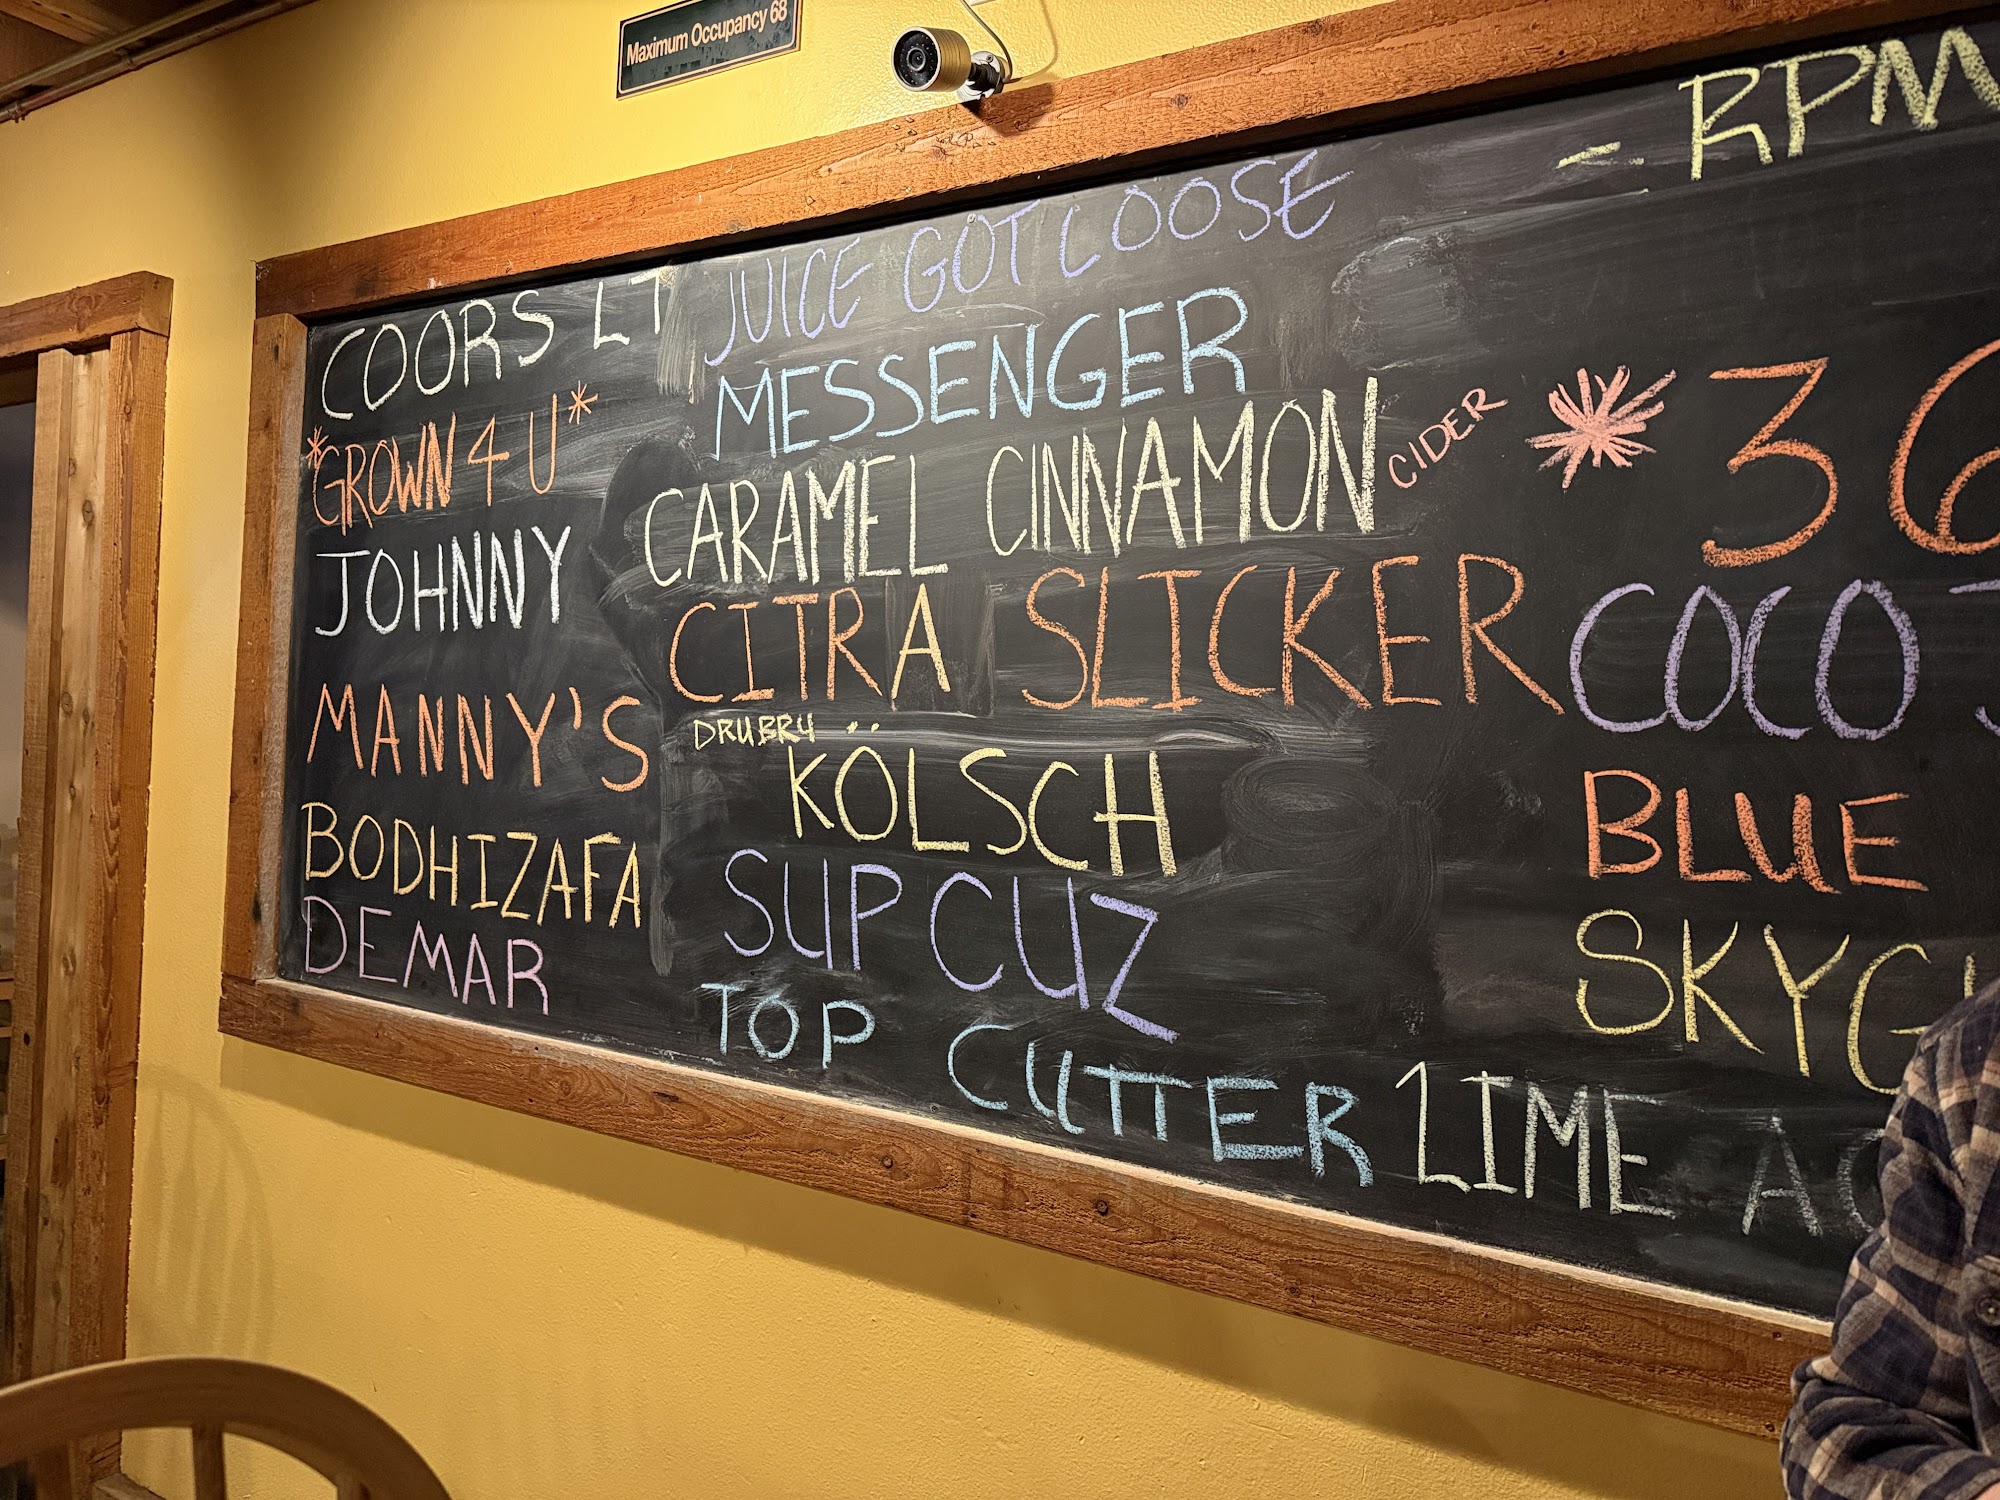 Maximum Occupancy 68
COORS LT
*GROWN 4 U*
JOHNNY
MANNY'S
BODHIZAFA
DEMAR
JUICE GOT LOOSE
MESSENGER
CARAMEL CINNAMON CIDER
CITRA SLICKER
DRUBRU
KÖLSCH
SUP CUZ
TOP CUTTER
- RPM
* 36
COCO J
BLUE
SKYG
LIME AG